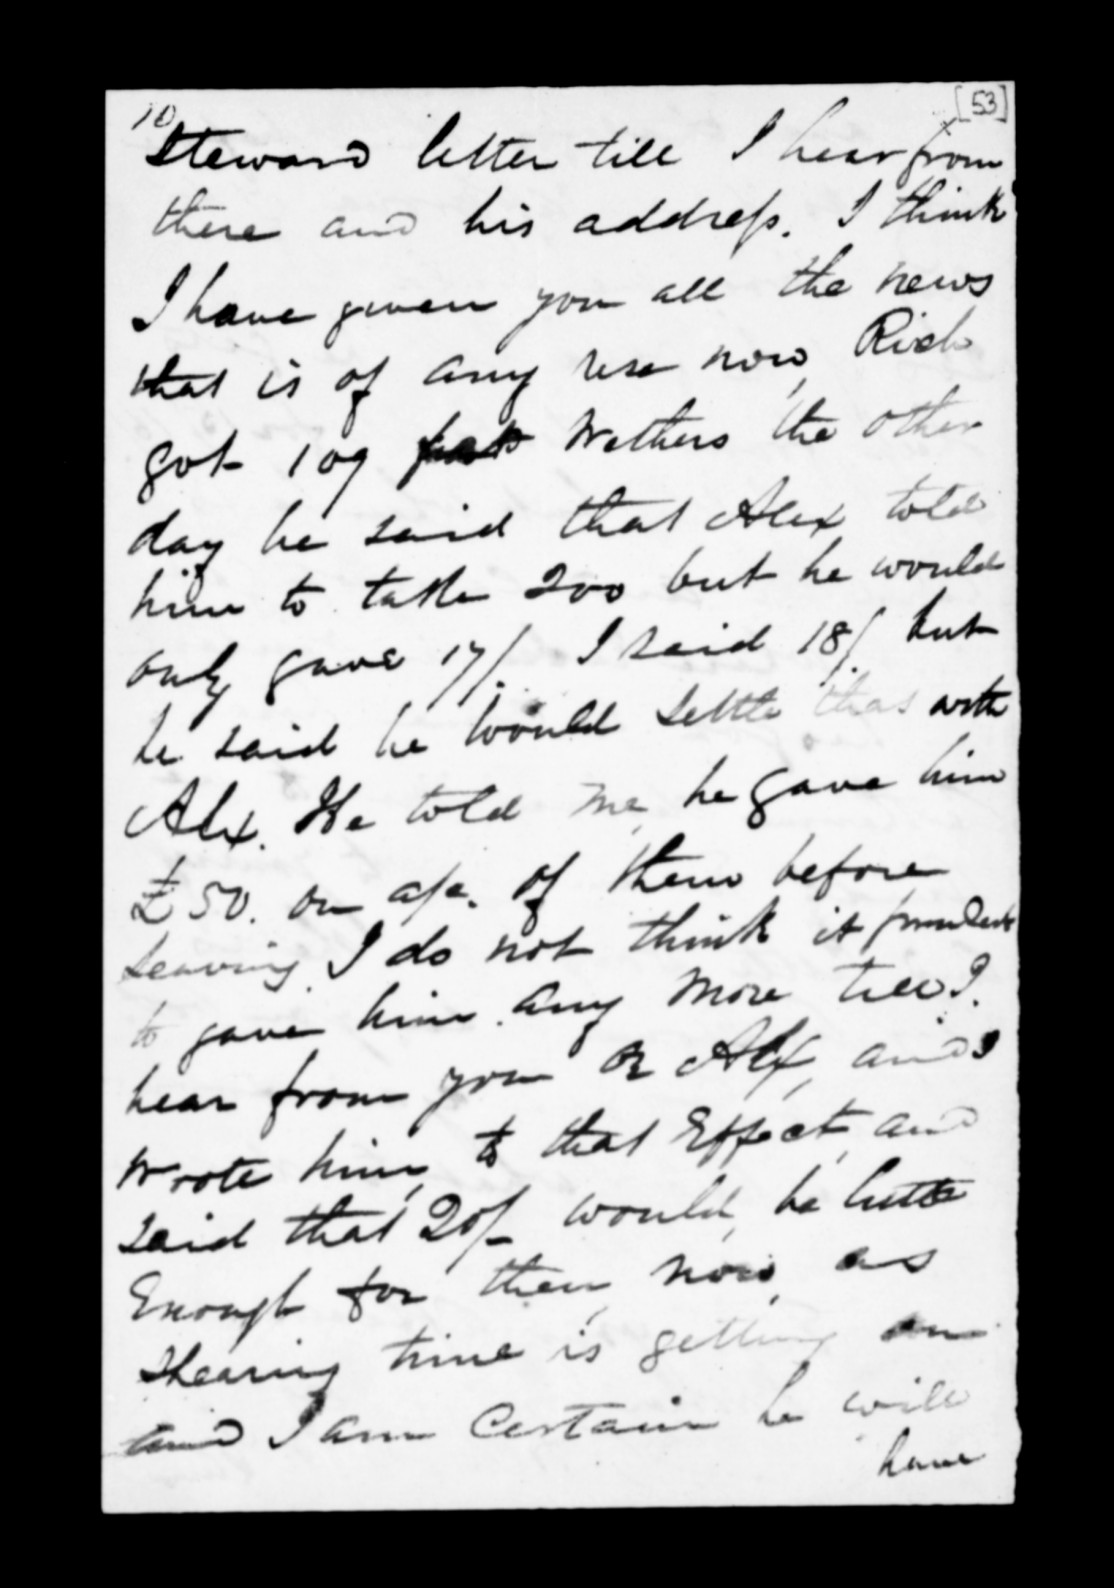 10
[53]
Steward letter till I hear from
there and his address. I think
I have given you all the news
that is of any use now, Rich
got 109 Wethers the other
day he said that Alex told
him to take 200 but he would
only gave 17/. I said 18/. but
he said he would settle that with
Alex. He told me he gave him
£50. on a/c. of them before
leaving. I do not think it prudent
to gave him any more till I.
hear from you or Alex, and I
wrote him, to that Effect, and
said that 20/- would, be little
Enough for them, now, as
Shearing time is getting on
and I am Certain he will
have